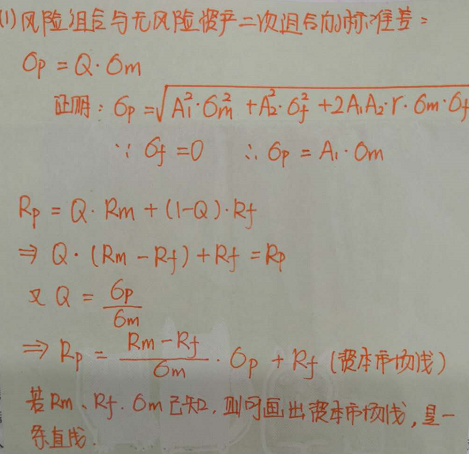 (1)风险组合与无风险资产二次组合的标准差:
σp = Q·σm
证明: σp = √A₁²·σm² + A₂²·σf² + 2A₁A₂·r·σm·σf
∵ σf = 0 ∴ σp = A₁·σm
Rp = Q·Rm + (1-Q)·Rf
⇒ Q·(Rm - Rf) + Rf = Rp
又 Q = σp/σm
⇒ Rp = (Rm - Rf)/σm · σp + Rf (资本市场线)
若Rm、Rf、σm已知, 则可画出资本市场线, 是一
条直线.